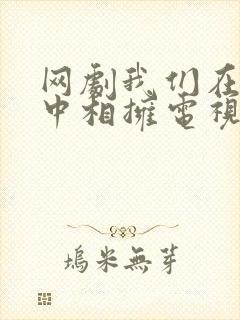 网劇我们在
中相擁電視
塢米無芽